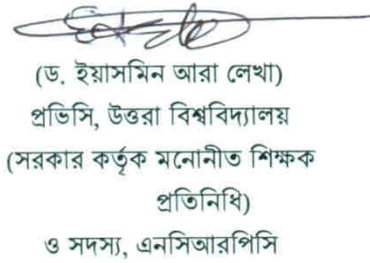 (ড. ইয়াসমিন আরা লেখা)
প্রভিসি, উত্তরা বিশ্ববিদ্যালয়
(সরকার কর্তৃক মনোনীত শিক্ষক
প্রতিনিধি)
ও সদস্য, এনসিআরপিসি